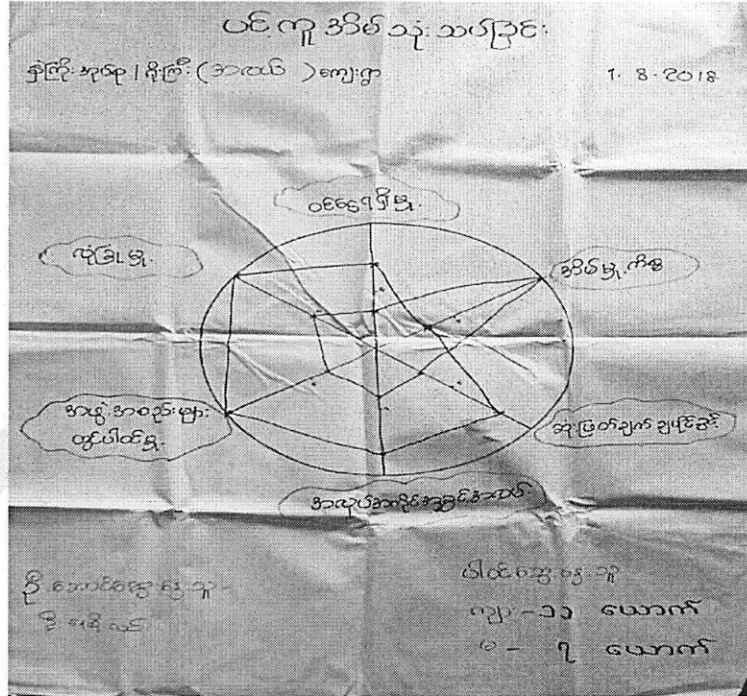 ပင့်ကူအိမ်သုံးသပ်ခြင်း
အုပ်စု၊ ကိုးကြီး (အလယ်) ကျေးရွာ
1.8.2018
ဝင်ငွေရရှိမှု
လှုံ့ခြုံမှု
အိမ်မှုကိစ္စ
အဖွဲ့အစည်းများ
တွင်ပါဝင်မှု
ဆုံးဖြတ်ချက်ချပိုင်ခွင့်
အလုပ်အကိုင်အခွင့်အလမ်း
ဦးဆောင်ဆွေးနွေးသူ-
ပါဝင်ဆွေးနွေးသူ
ကျား - ၁၁ ယောက်
မ - ၇ ယောက်